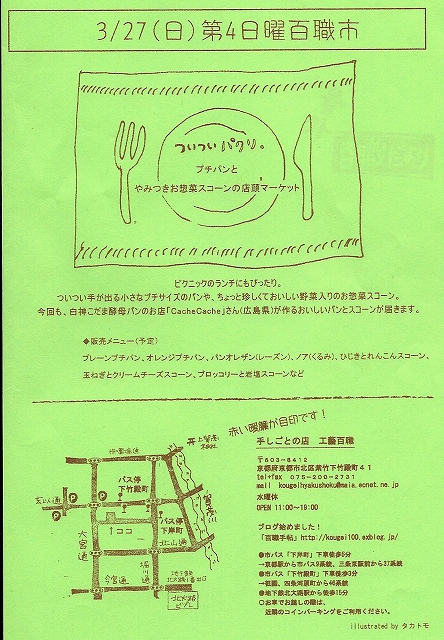 3/27(日)第4日曜百職市
ついついパクリ。
プチパンと
やみつきお惣菜スコーンの店頭マーケット
ピクニックのランチにもぴったり。
ついつい手が出る小さなプチサイズのパンや、ちょっと珍しくておいしい野菜入りのお惣菜スコーン。
今回も、白神こだま酵母パンのお店「CacheCache」さん(広島県)が作るおいしいパンとスコーンが届きます。
◆販売メニュー(予定)
プレーンプチパン、オレンジプチパン、パンオレザン(レーズン)、ノア(くるみ)、ひじきとれんこんスコーン、
玉ねぎとクリームチーズスコーン、ブロッコリーと岩塩スコーンなど
赤い暖簾が目印です!
手しごとの店 工藝百職
〒603-8412
京都府京都市北区紫竹下竹殿町41
tel+fax 075-200-2731
mail kougeihyakushoku@maia.eonet.ne.jp
水曜休
OPEN 11:00~19:00
ブログ始めました!
「百職手帖」http://kougei100.exblog.jp/
●市バス「下岸町」下車徒歩5分
→京都駅から市バス9系統、三条京阪前から37系統
●市バス「下竹殿町」下車徒歩3分
→祇園、四条河原町から46系統
●地下鉄北大路駅から徒歩15分
○お車でお越しの際は、
近隣のコインパーキングをご利用ください。
上賀茂神社
バス停
下竹殿町
玄以通
P
P
P
バス停
下岸町
ココ
北山通
大宮通
今宮通
堀川通
illustrated by タカトモ